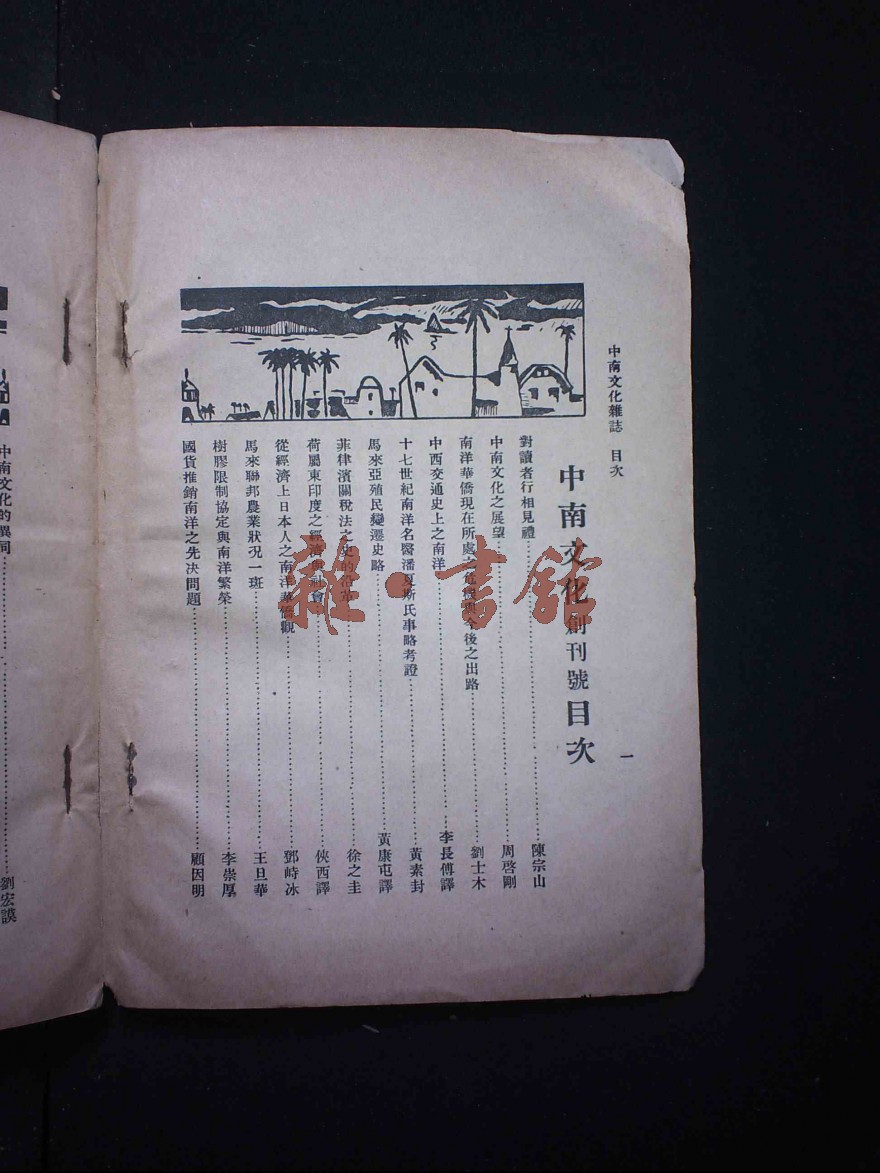 中南文化雜誌 目次
一
中南文化創刊號目次
對讀者行相見禮……陳宗山
中南文化之展望……周啓剛
南洋華僑現在所處之危機與今後之出路……劉士木
中西交通史上之南洋……李長傅譯
十七世紀南洋名醫潘夏斯氏事略考證……黃素封
馬來亞殖民變遷史略……黃康屯譯
菲律濱關稅法之史的沿革……徐之圭
荷屬東印度之經濟與社會……俠西譯
從經濟上日本人之南洋華僑觀……鄧峙冰
馬來聯邦農業狀況一班……王旦華
樹膠限制協定與南洋繁榮……李崇厚
國貨推銷南洋之先決問題……顧因明
中南文化的異同……劉宏謨
雜·書館